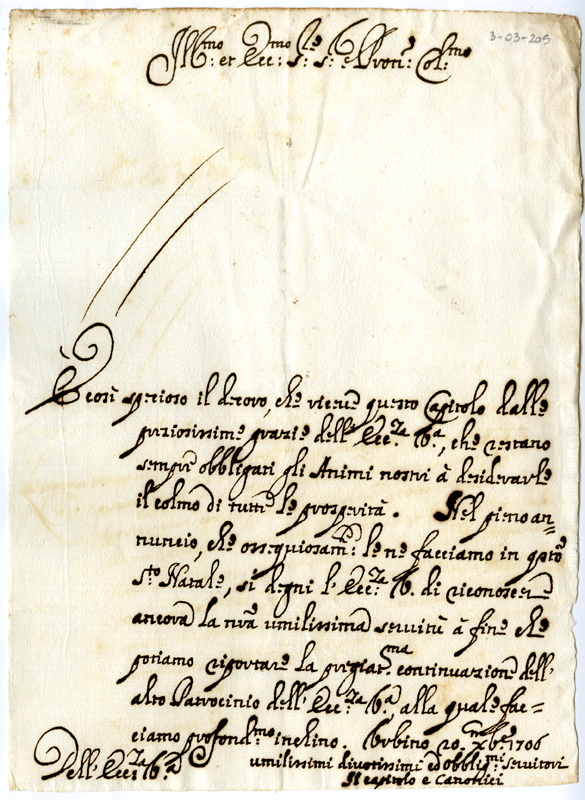 3-03-205
Ill.mo et Ecc: S.re S.re e Pron: Col.mo
È così spezioso il decoro, che riceve questo Capitolo dalle
preziosissime grazie dell' Ecc.za V.a, che restano
sempre obbligati gli Animi nostri à desiderarle
il colmo di tutte le prosperità. Nel pieno an-
nuncio, che ossequiosam: le ne facciamo in qsto
S.to Natale, si degni l' Ecc.za V. di riconoscere
ancora la nra umilissima servitù à fine che
potiamo riportare la pregiat.ma continuazione dell'
alto Patrocinio dell' Ecc.za V.a, alla quale fac=
ciamo profond.mo inchino. Urbino 20. Xbre 1706
Dell' Ecc.za V.a
umilissimi divotissimi ed obblig.mi servitori
Il capitolo e Canonici